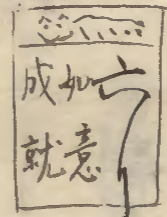 六
如意
成就